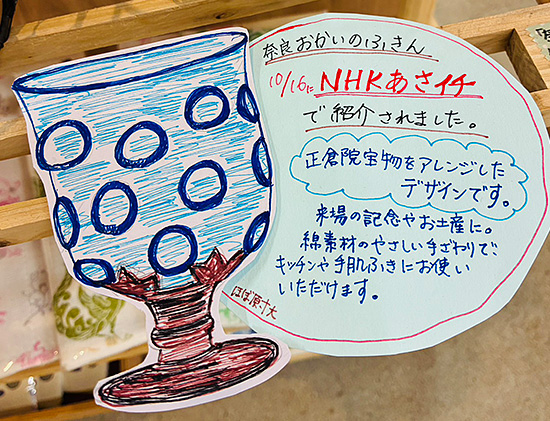 奈良おかいのふきん
10/16に NHKあさイチ
で紹介されました。
正倉院宝物をアレンジした
デザインです。
来場の記念やお土産に。
綿素材のやさしい手ざわりで、
キッチンや手肌ふきにお使い
いただけます。
ほぼ原寸大